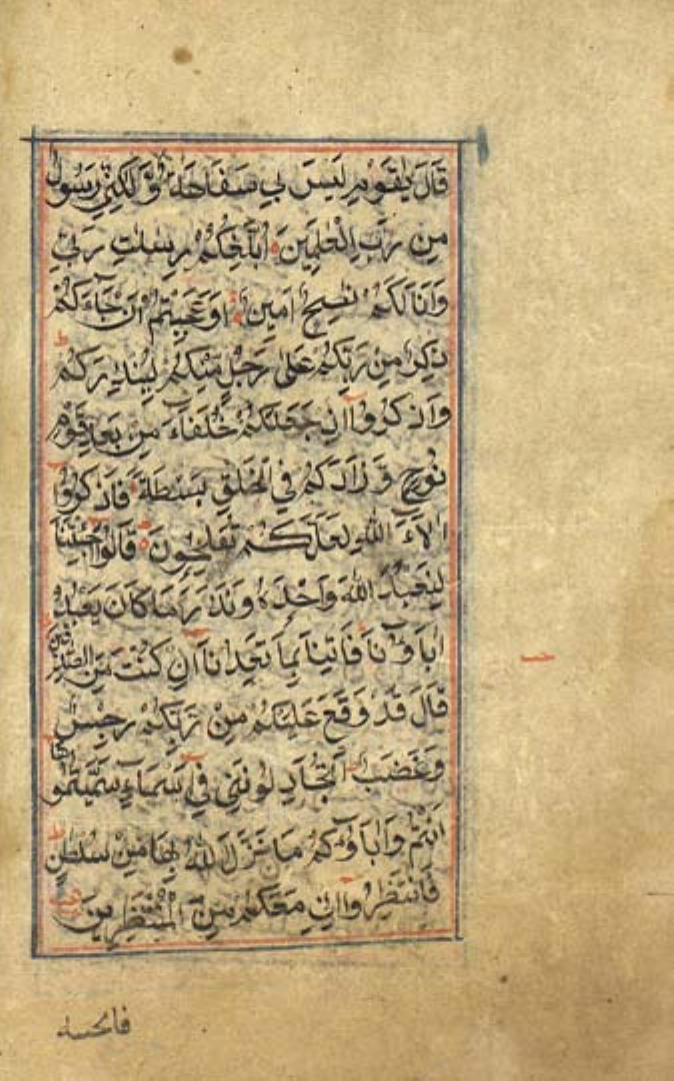 قَالَ يٰقَوْمِ لَيْسَ بِي سَفَاهَةٌ وَّلٰكِنِّي رَسُولٌ
مِنْ رَّبِّ الْعٰلَمِينَ اُبَلِّغُكُمْ رِسٰلٰتِ رَبِّي
وَاَنَا لَكُمْ نَاصِحٌ اَمِينٌ اَوَعَجِبْتُمْ اَنْ جَاءَكُمْ
ذِكْرٌ مِنْ رَبِّكُمْ عَلٰى رَجُلٍ مِنْكُمْ لِيُنْذِرَكُمْ
وَاذْكُرُوا اِذْ جَعَلَكُمْ خُلَفَاءَ مِنْ بَعْدِ قَوْمِ
نُوحٍ وَّزَادَكُمْ فِي الْخَلْقِ بَسْطَةً فَاذْكُرُوا
اٰلَاءَ اللّٰهِ لَعَلَّكُمْ تُفْلِحُونَ قَالُوا اَجِئْتَنَا
لِنَعْبُدَ اللّٰهَ وَحْدَهُ وَنَذَرَ مَا كَانَ يَعْبُدُ
اٰبَاؤُنَا فَاْتِنَا بِمَا تَعِدُنَا اِنْ كُنْتَ مِنَ الصّٰدِقِينَ
قَالَ قَدْ وَقَعَ عَلَيْكُمْ مِنْ رَّبِّكُمْ رِجْسٌ
وَغَضَبٌ اَتُجَادِلُونَنِي فِي اَسْمَاءٍ سَمَّيْتُمُوهَا
اَنْتُمْ وَاٰبَاؤُكُمْ مَا نَزَّلَ اللّٰهُ بِهَا مِنْ سُلْطٰنٍ
فَانْتَظِرُوا اِنِّي مَعَكُمْ مِنَ الْمُنْتَظِرِينَ
فانجينه